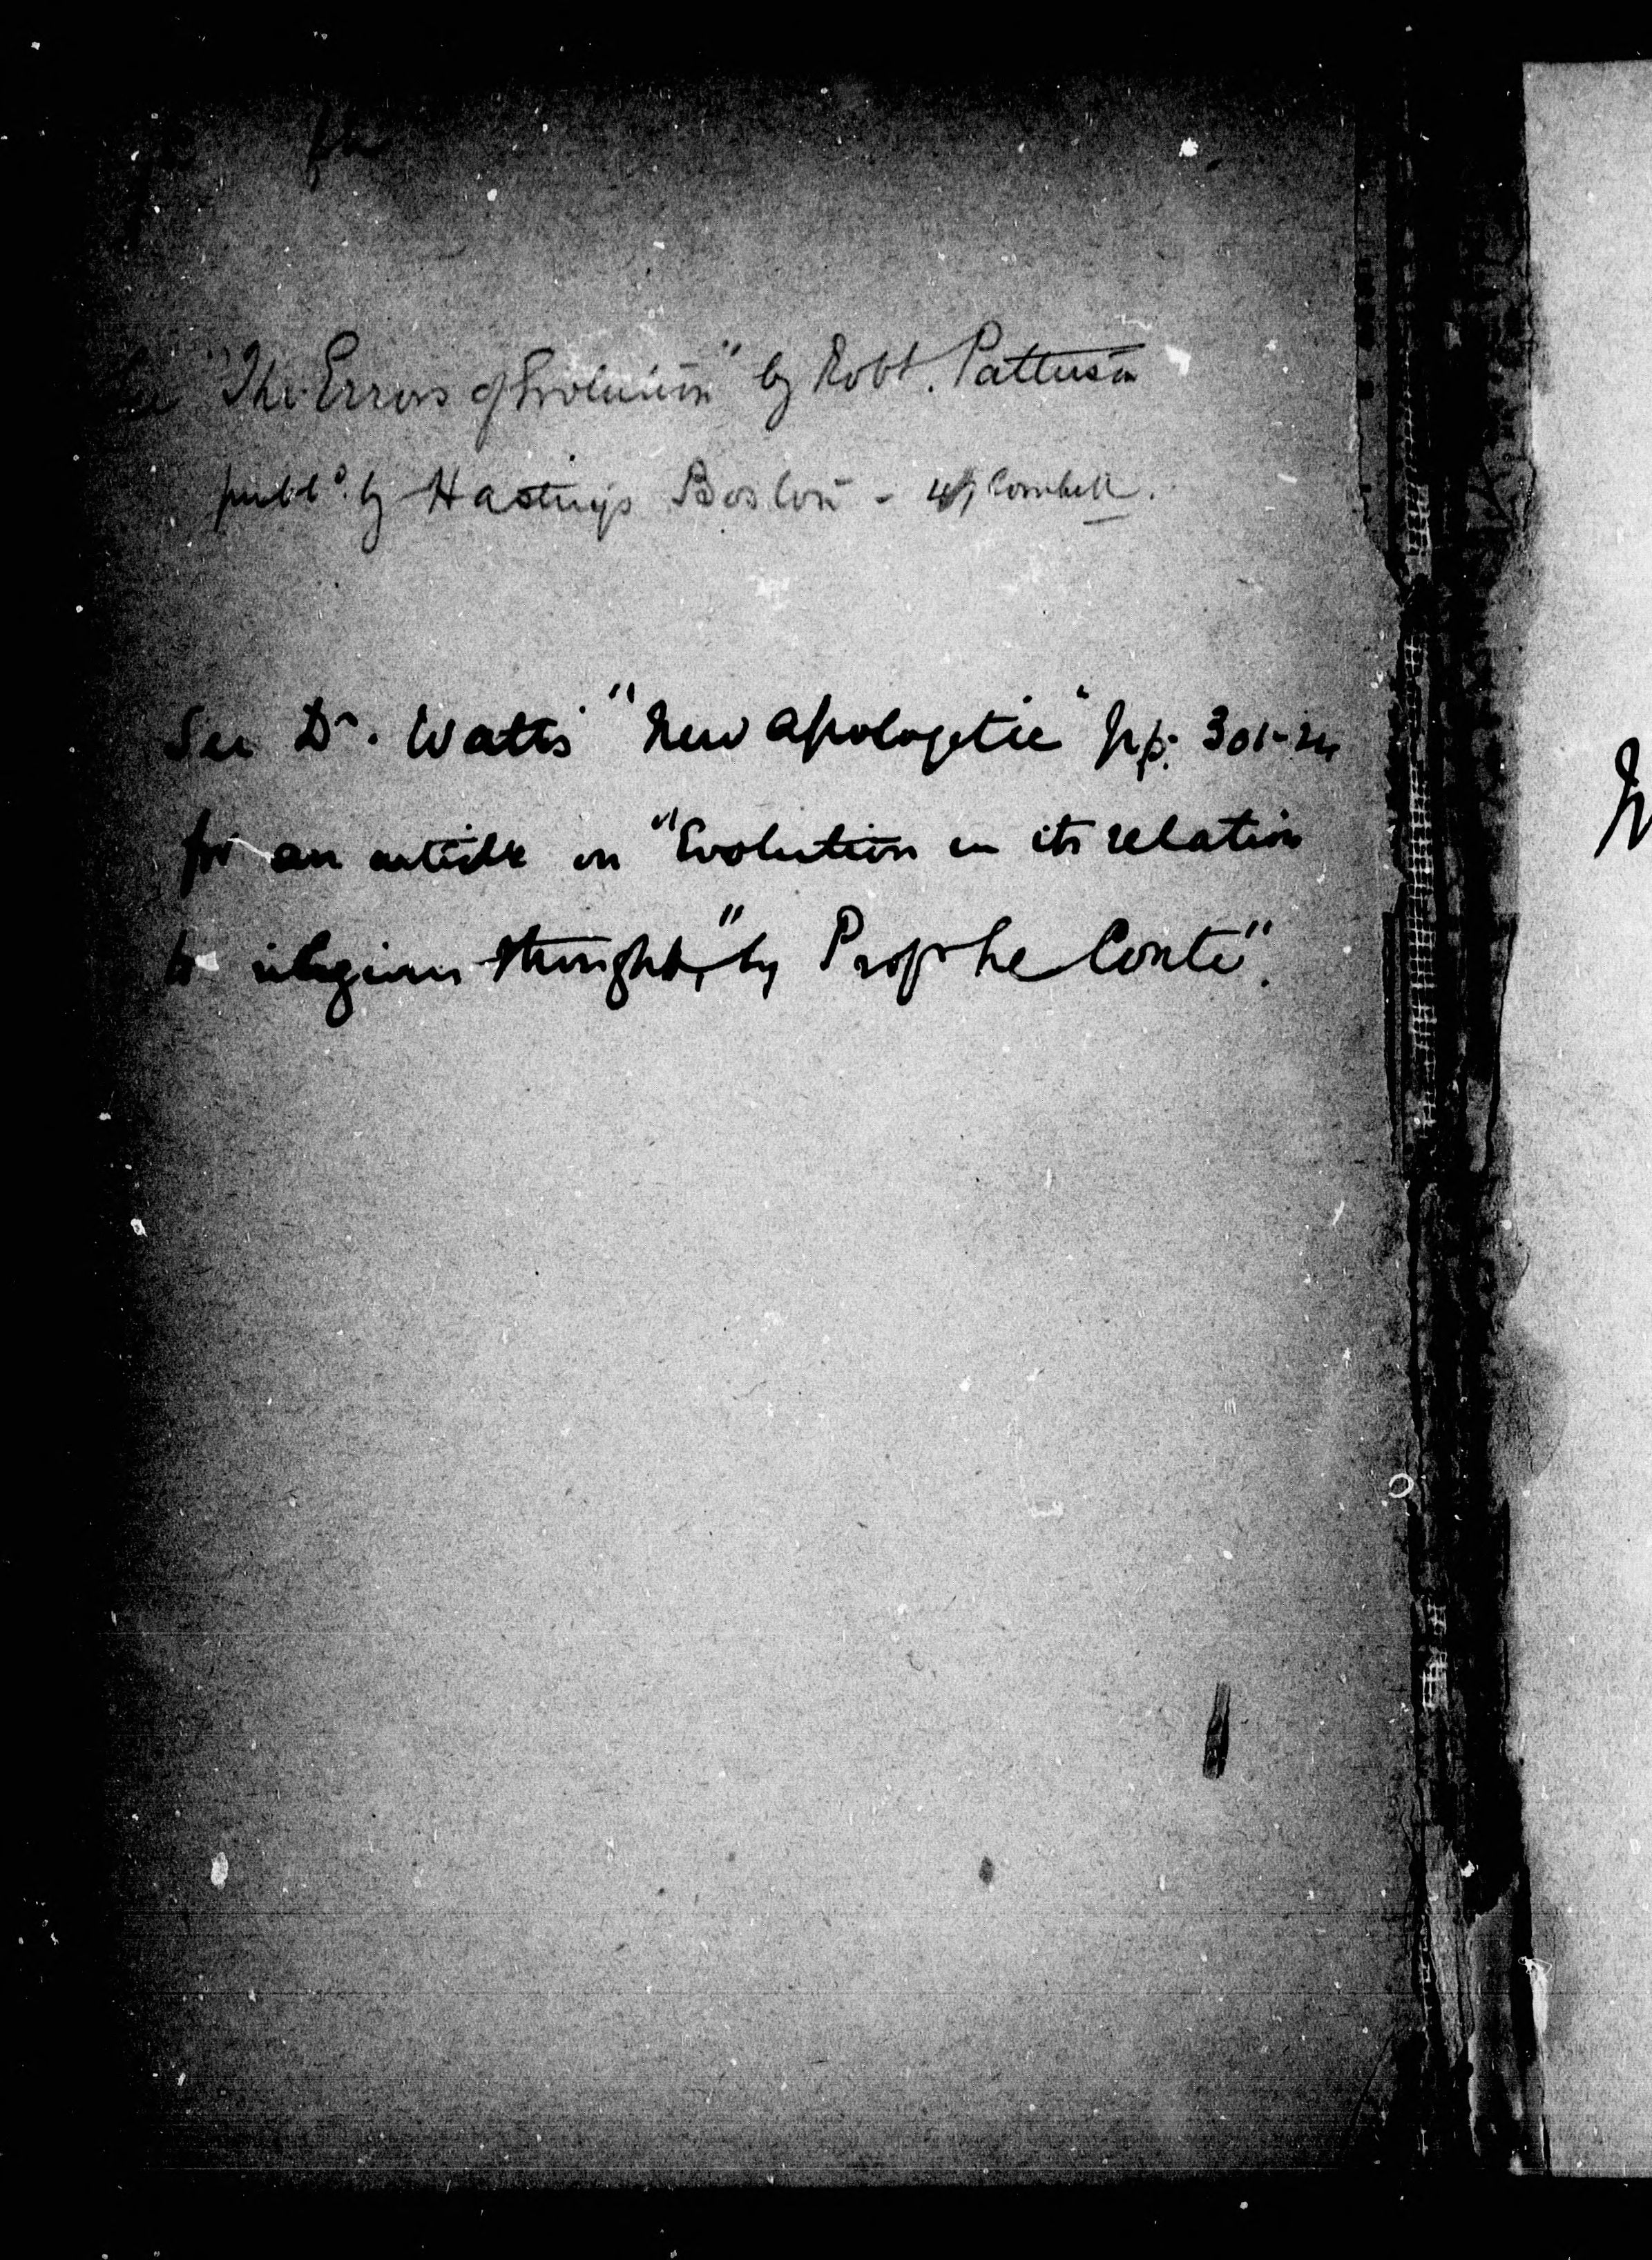 See "The Errors of Evolution" by Robt. Patterson
publd. by Hastings Boston -
See Dr. Watts' "New Apologetic" pp. 301-24
for an article on "Evolution in its relation
to religious thought," by Prof Le Conte".